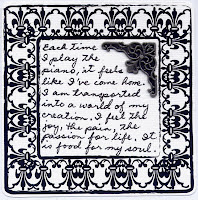 Each time
I play the
piano, it feels
like I've come home.
I am transported
into a world of my
creation. I feel the
joy, the pain, the
passion for life. It
is food for my soul.